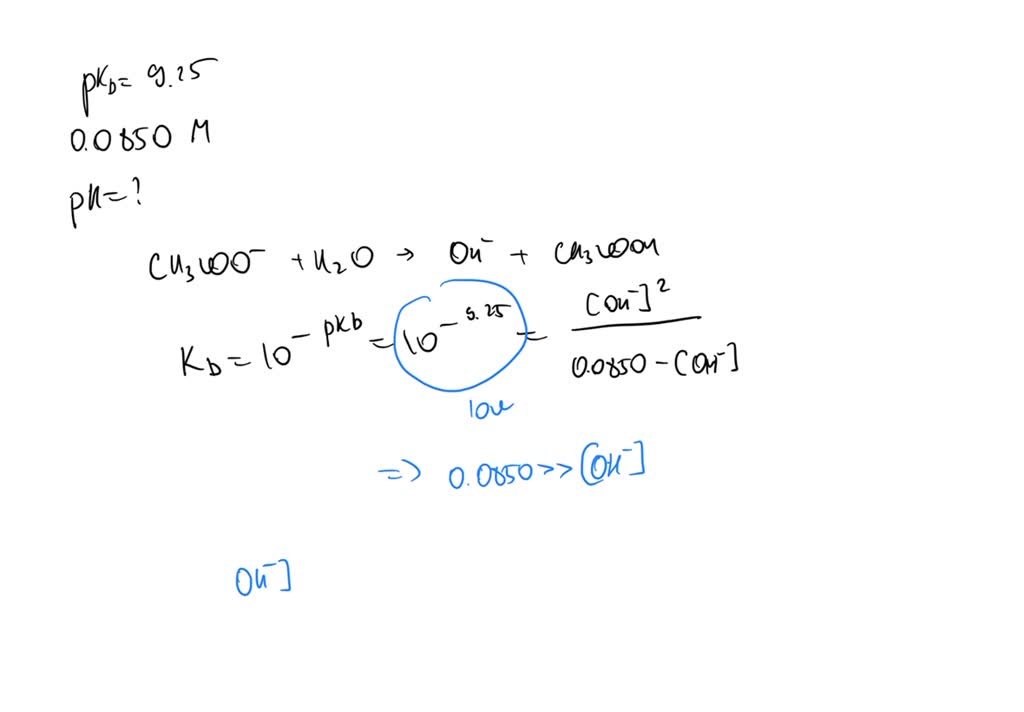 pKb= 9.25
0.0850 M
pH=?
CH₃COO⁻ + H₂O → OH⁻ + CH₃COOH
Kb = 10^(-pKb) = 10^(-9.25) = [OH⁻]² / 0.0850 - [OH⁻]
low
=> 0.0850 >> [OH⁻]
OH⁻]